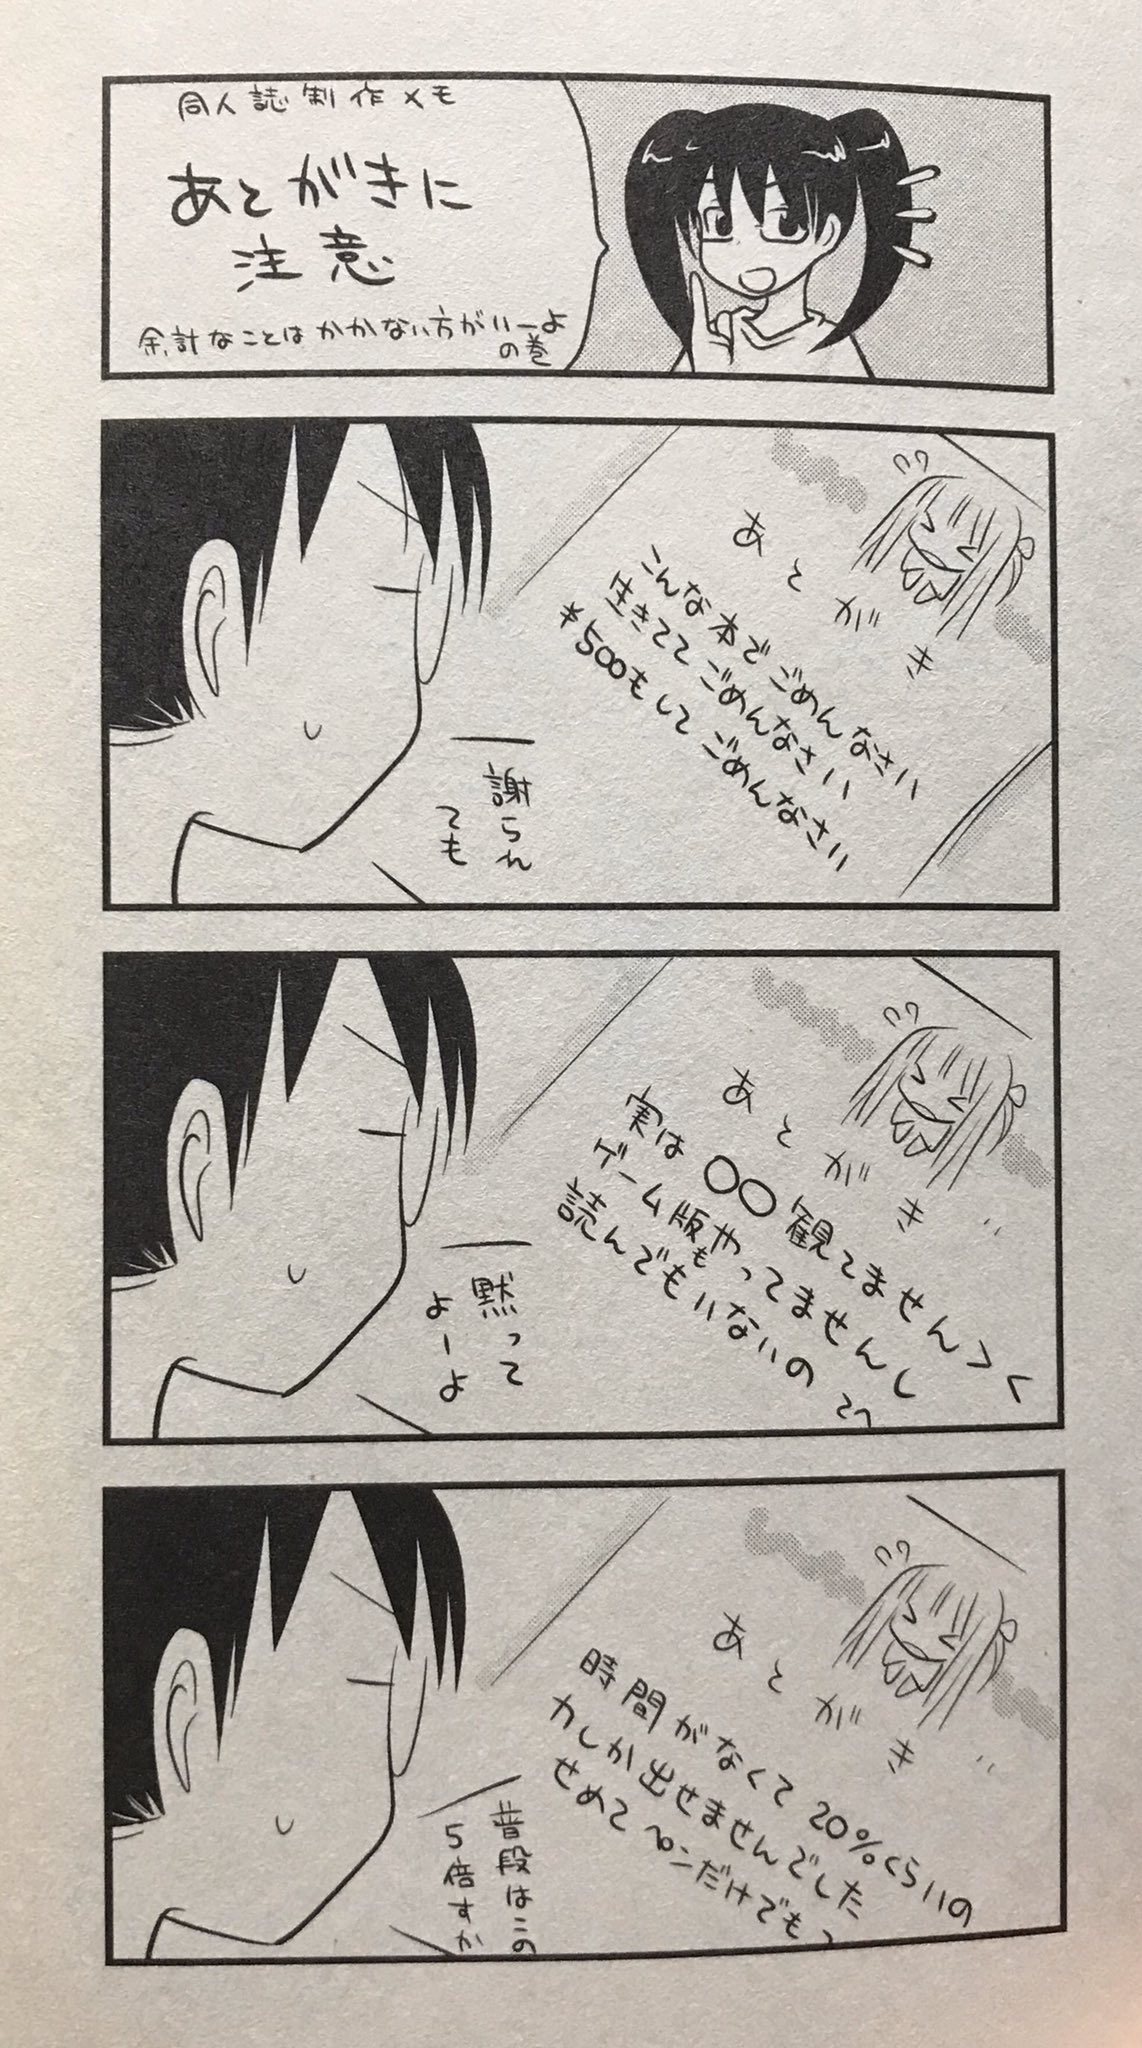 同人誌制作メモ
あとがきに
注意
余計なことはかかない方がいーよ
の巻
あとがき
こんな本でごめんなさい
生きててごめんなさい
¥500もしてごめんなさい
謝られ
ても
あとがき
実は〇〇観てませんつく
ゲーム版もやってませんし
読んでもいないの
黙って
よーよ
あとがき
時間がなくて20%くらいの
力しか出せませんでした
せめてペンだけでもっ
普段はこの
5倍すか